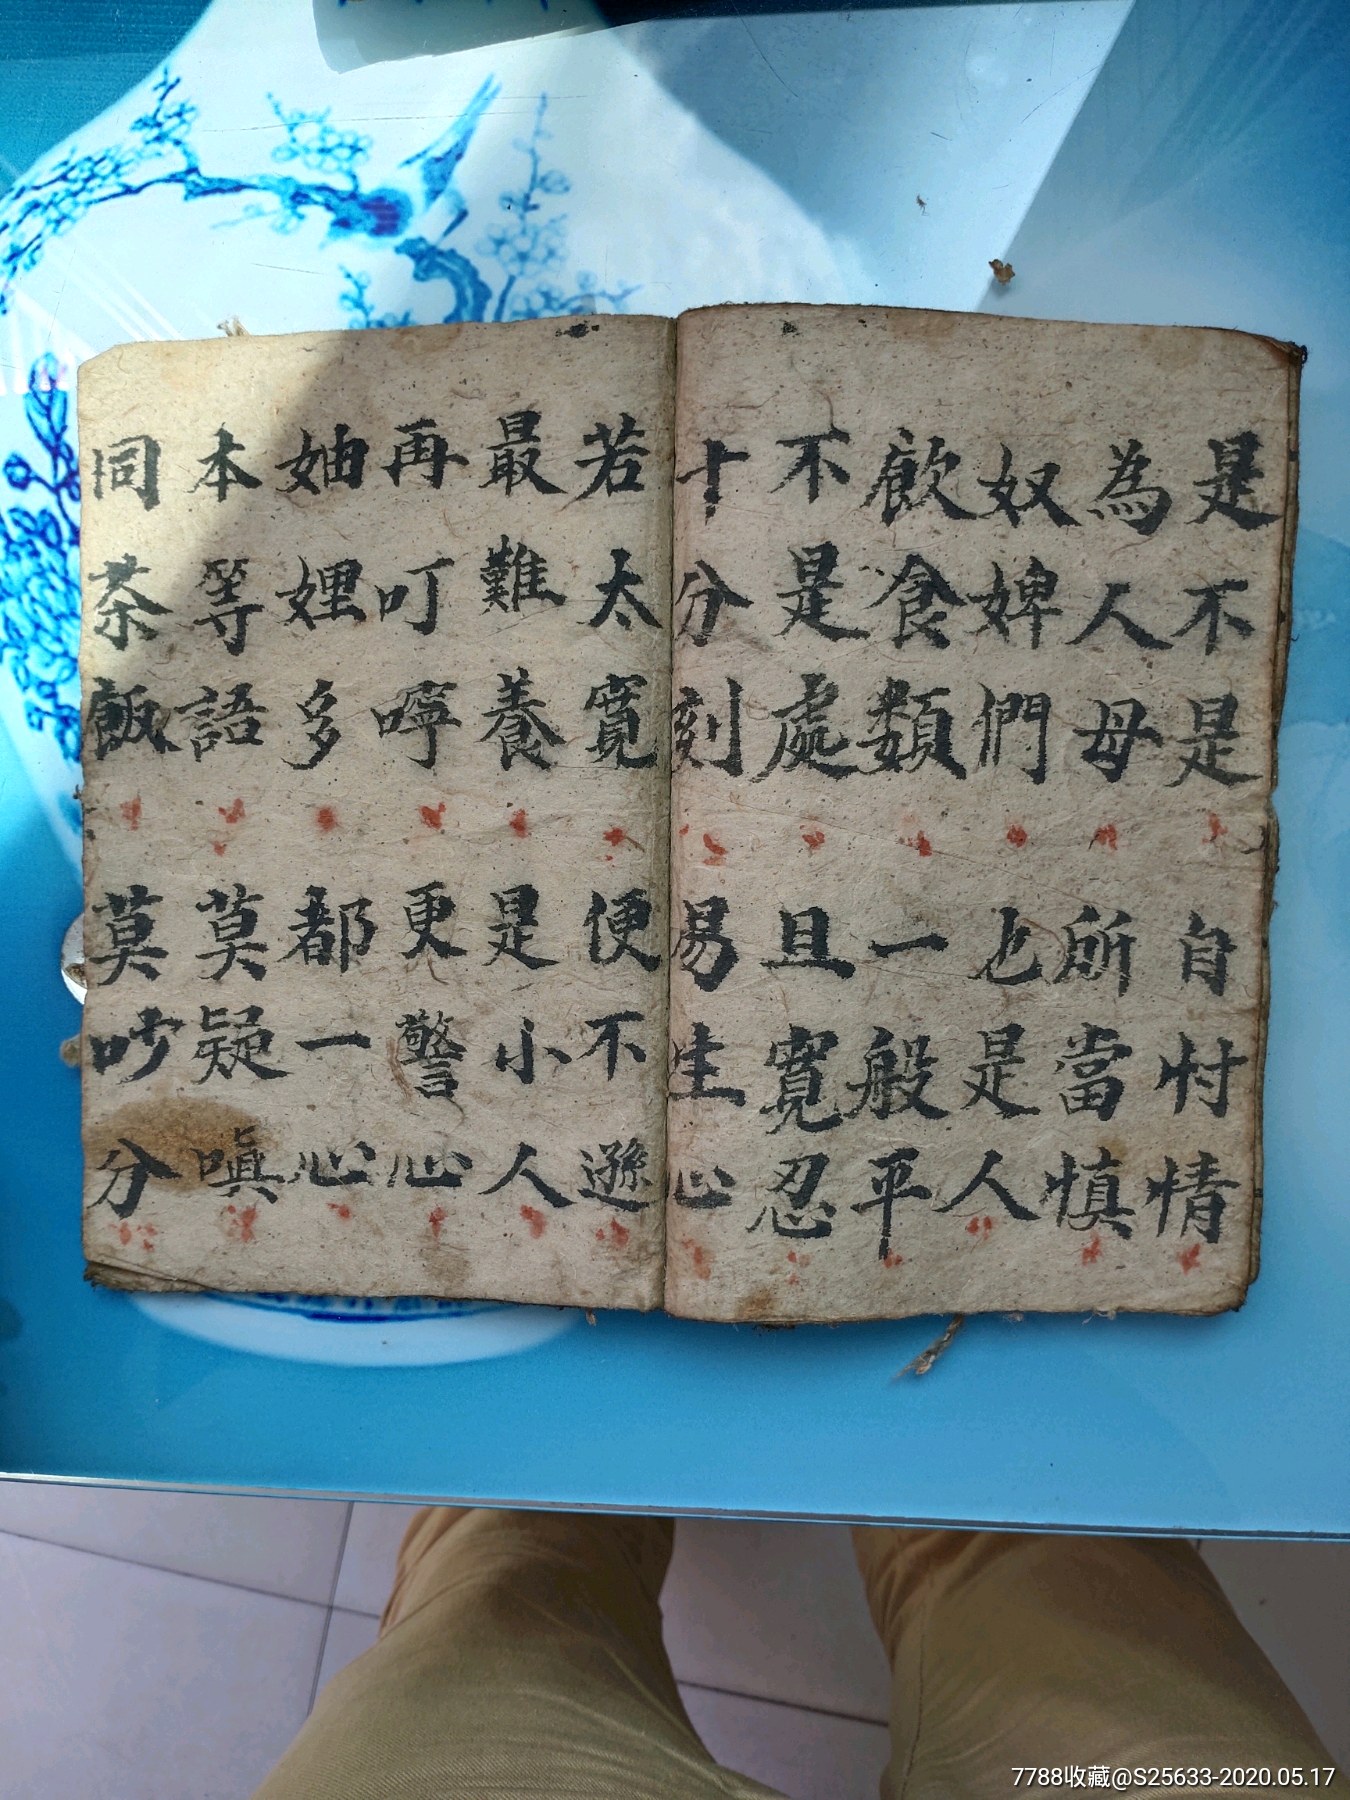 是不是自忖情
為人母所當慎
奴婢們也是人
飲食類一般平
不是處且寬忍
十分刻易生心
若太寬便不遜
最難養是小人
再叮嚀更警心
妯娌多都一心
本等語莫疑嗔
同茶飯莫吵分
7788收藏@S25633-2020.05.17